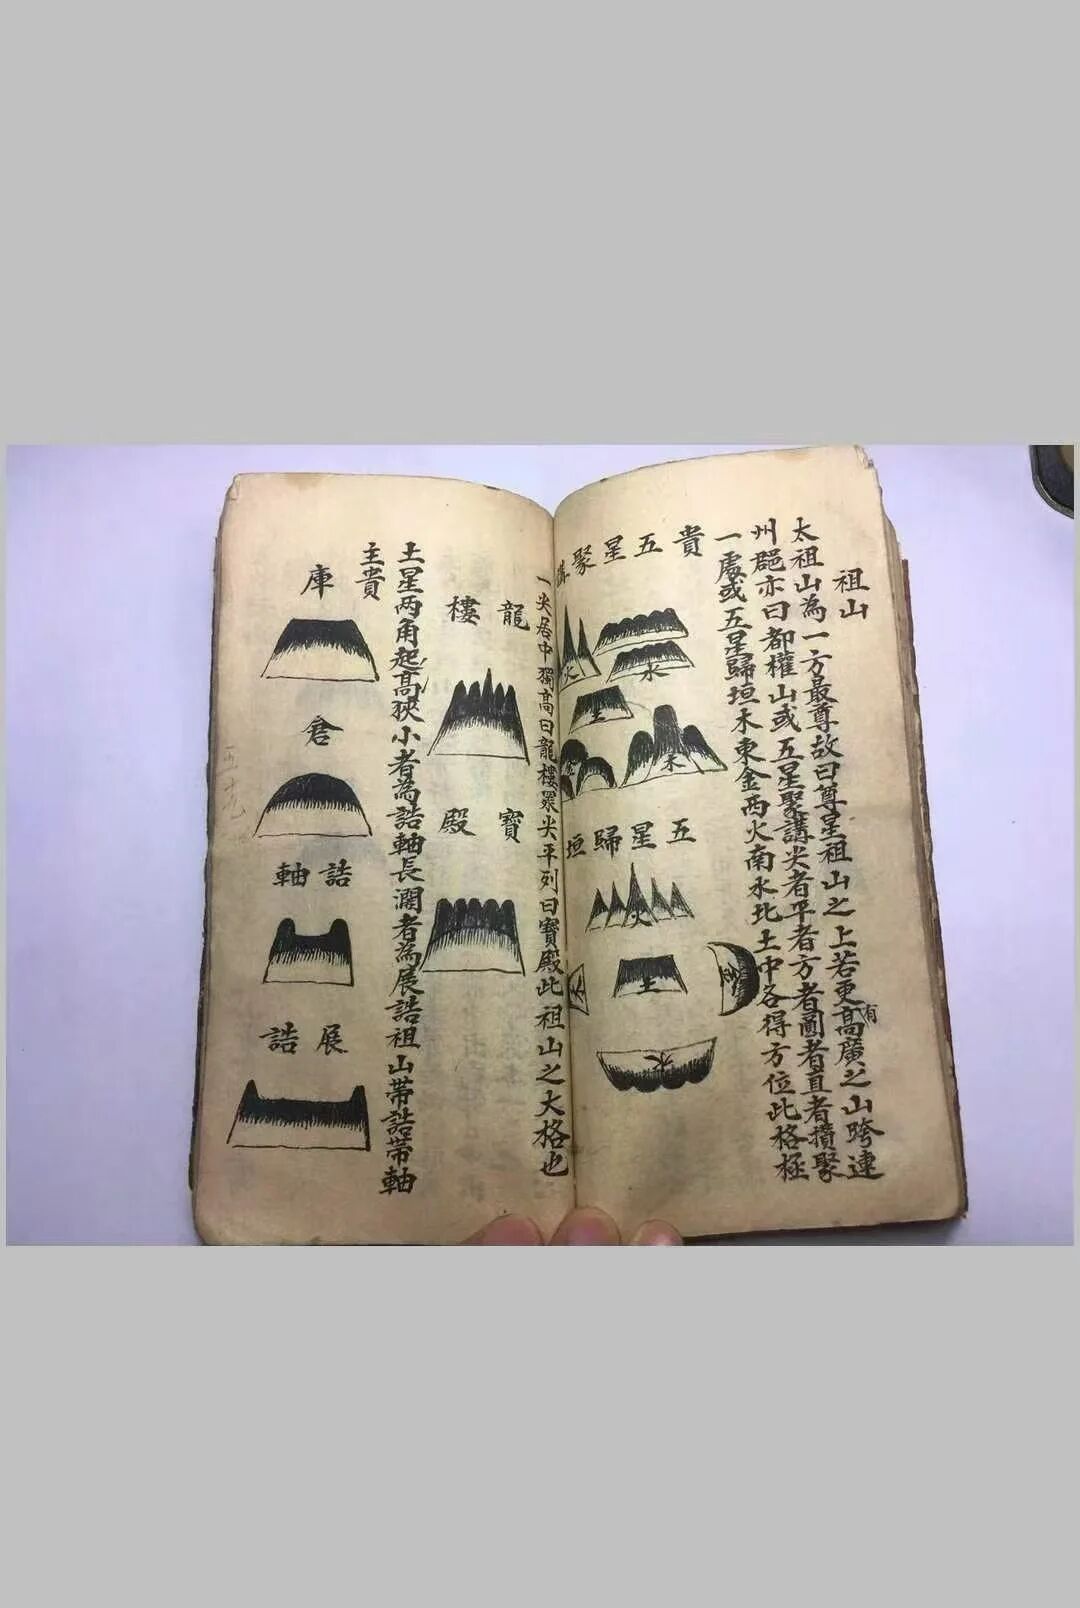 祖山
太祖山為一方最尊故曰尊星祖山之上若更有高廣之山跨連
州郡亦曰都權山或五星聚講尖者平者方者圓者直者攢聚
一處或五星歸垣木東金西火南水北土中各得方位此格極
貴
五星聚講
火
水
土
金
木
五星歸垣
火
木
土
金
水
一尖居中獨高曰龍樓眾尖平列曰寶殿此祖山之大格也
龍樓
寶殿
土星两角起高狹小者為誥軸長濶者為展誥祖山帯誥帯軸
主貴
庫
倉
誥軸
展誥